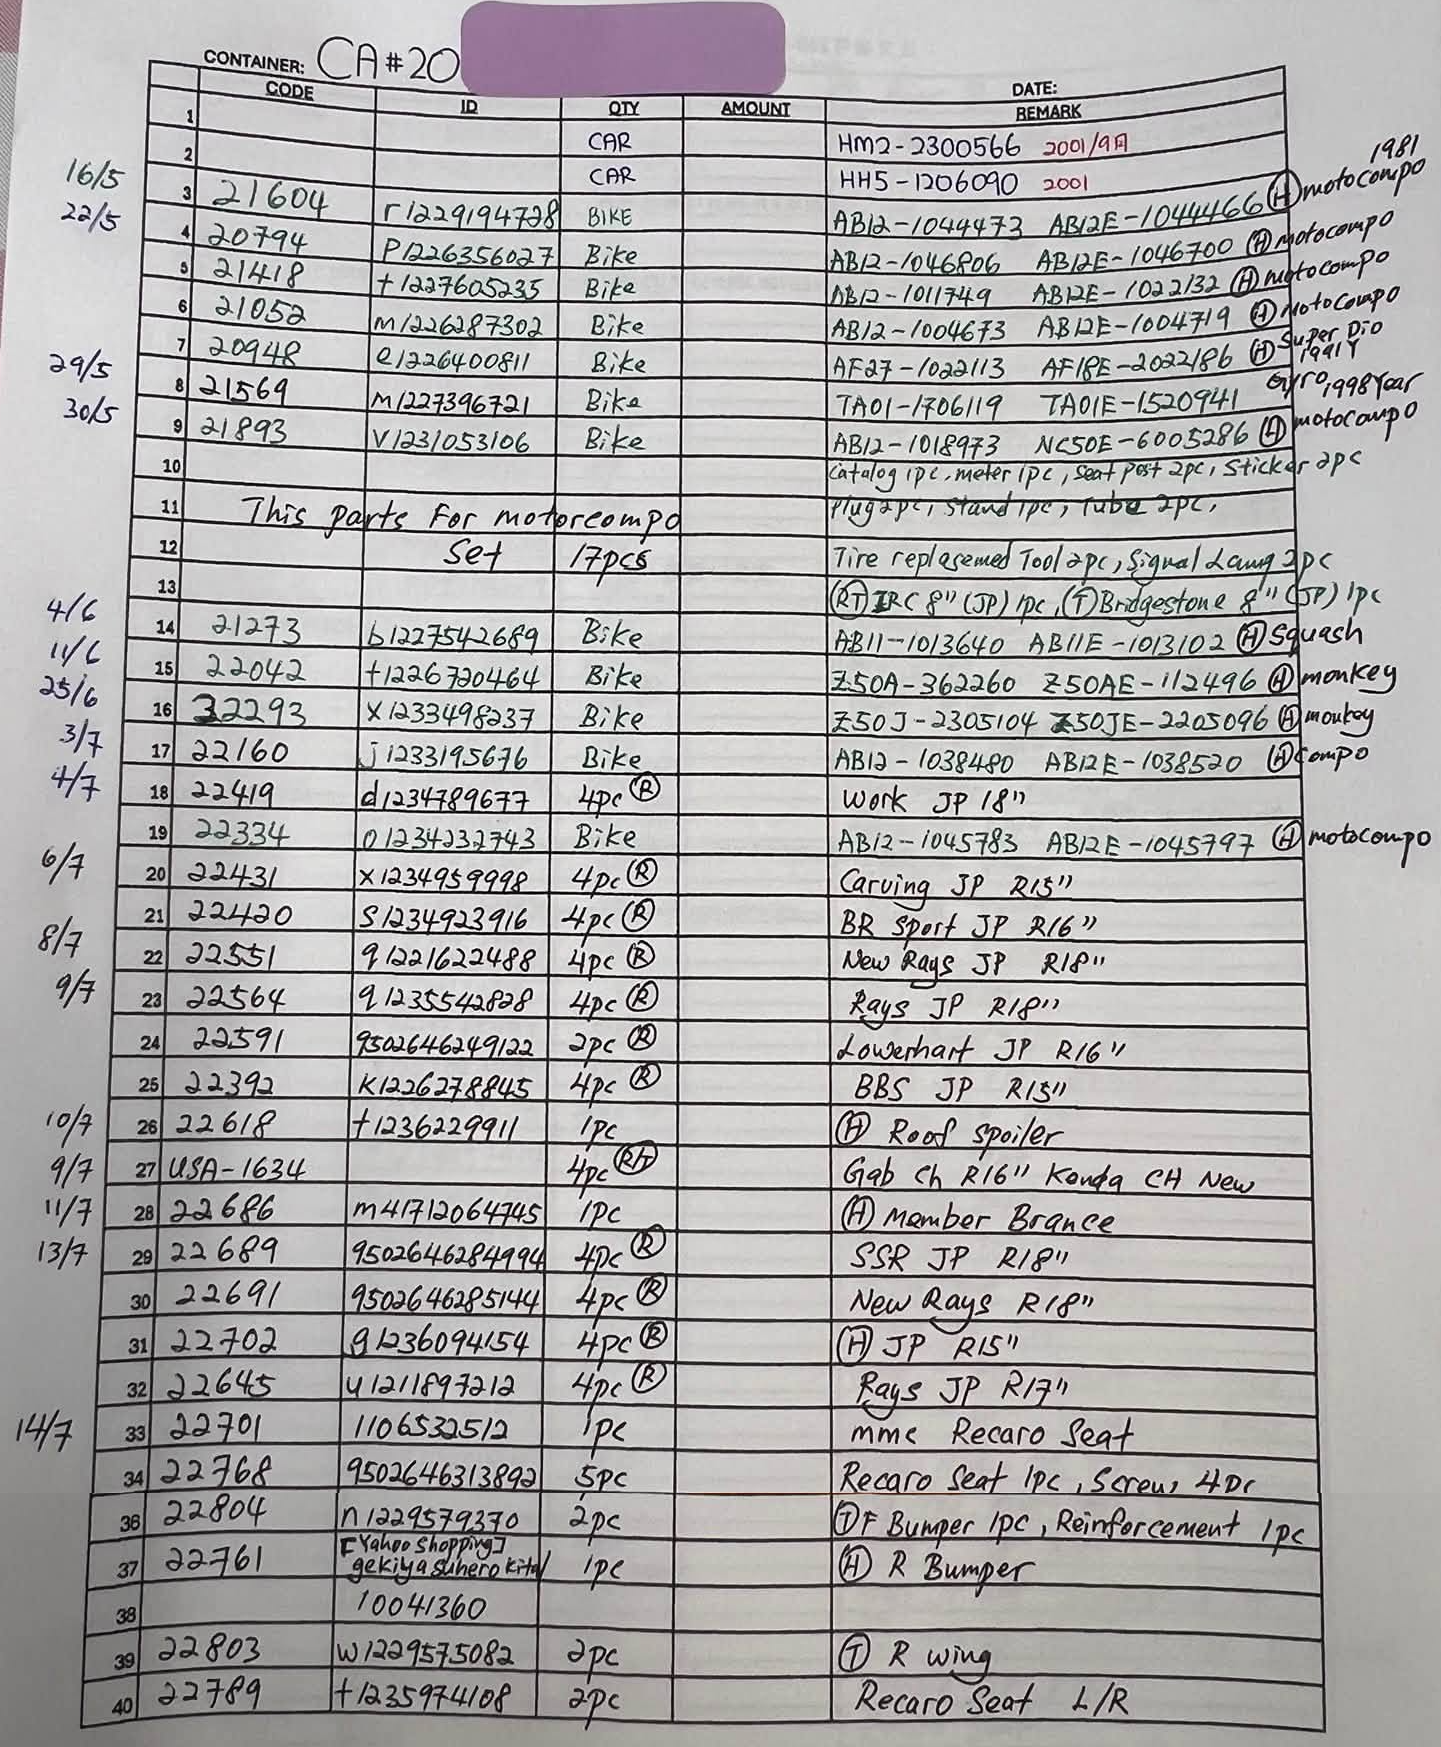 CONTAINER: CA#20
DATE:
CODE ID QTY AMOUNT REMARK
1 CAR HM2-2300566 2001/9月
2 CAR HH5-1206090 2001
16/5 3 21604 r1229194728 BIKE AB12-1044473 AB12E-1044466 Ⓗ motocompo 1981
22/5 4 20794 P1226356027 Bike AB12-1046806 AB12E-1046700 Ⓗ motocompo
5 21418 t1227605235 Bike AB12-1011749 AB12E-1022132 Ⓗ motocompo
6 21052 m1226287302 Bike AB12-1004673 AB12E-1004719 Ⓗ motocompo
7 20948 e1226400811 Bike AF27-1022113 AF18E-2022186 Ⓗ Super Dio 1991Y
29/5 8 21569 m1227396721 Bike TA01-1706119 TA01E-1520941 Gyro 1998Year
30/5 9 21893 V1231053106 Bike AB12-1018973 NC50E-6005286 Ⓗ motocompo
10 Catalog 1pc, meter 1pc, Seat Post 2pc, Sticker 2pc
11 This parts For motorcompo Plug 2pc, Stand 1pc, Tube 2pc,
12 Set 17pcs Tire replasemed Tool 2pc, Signal Lamg 2pc
13 (RT) IRC 8" (JP) 1pc, Ⓣ Bridgestone 8" (JP) 1pc
4/6 14 21273 b1227542689 Bike AB11-1013640 AB11E-1013102 Ⓗ Squash
11/6 15 22042 t1226720464 Bike Z50A-362260 Z50AE-112496 Ⓗ monkey
25/6 16 22293 X1233498237 Bike Z50J-2305104 Z50JE-2205096 Ⓗ monkey
3/7 17 22160 j1233195676 Bike AB12-1038480 AB12E-1038520 Ⓗ Compo
4/7 18 22419 d1234789677 4pc Ⓡ Work JP 18"
19 22334 o1234232743 Bike AB12-1045783 AB12E-1045797 Ⓗ motocompo
6/7 20 22431 X1234959998 4pc Ⓡ Carving JP R15"
21 22420 S1234923916 4pc Ⓡ BR Sport JP R16"
8/7 22 22551 q1221622488 4pc Ⓡ New Rays JP R18"
9/7 23 22564 q1235542828 4pc Ⓡ Rays JP R18"
24 22591 9502646249122 2pc Ⓡ Lowenhart JP R16"
25 22392 K1226278845 4pc Ⓡ BBS JP R15"
10/7 26 22618 t1236229911 1pc Ⓗ Roof Spoiler
9/7 27 USA-1634 4pc (R/T) Gab Ch R16" Kenda CH New
11/7 28 22686 m41712064745 1pc Ⓗ member Brance
13/7 29 22689 9502646284994 4pc Ⓡ SSR JP R18"
30 22691 9502646285144 4pc Ⓡ New Rays R18"
31 22702 g1236094154 4pc Ⓡ Ⓗ JP R15"
32 22645 u1211897212 4pc Ⓡ Rays JP R17"
14/7 33 22701 1106532512 1pc mmc Recaro Seat
34 22768 9502646313892 5pc Recaro Seat 1pc, Screw, 4pc
36 22804 n1229579370 2pc Ⓣ F Bumper 1pc, Reinforcement 1pc
37 22761 [Yahoo Shopping] gekiyasuhero kital 1pc Ⓗ R Bumper
38 10041360
39 22803 w1229575082 2pc Ⓣ R wing
40 22789 t1235974108 2pc Recaro Seat L/R